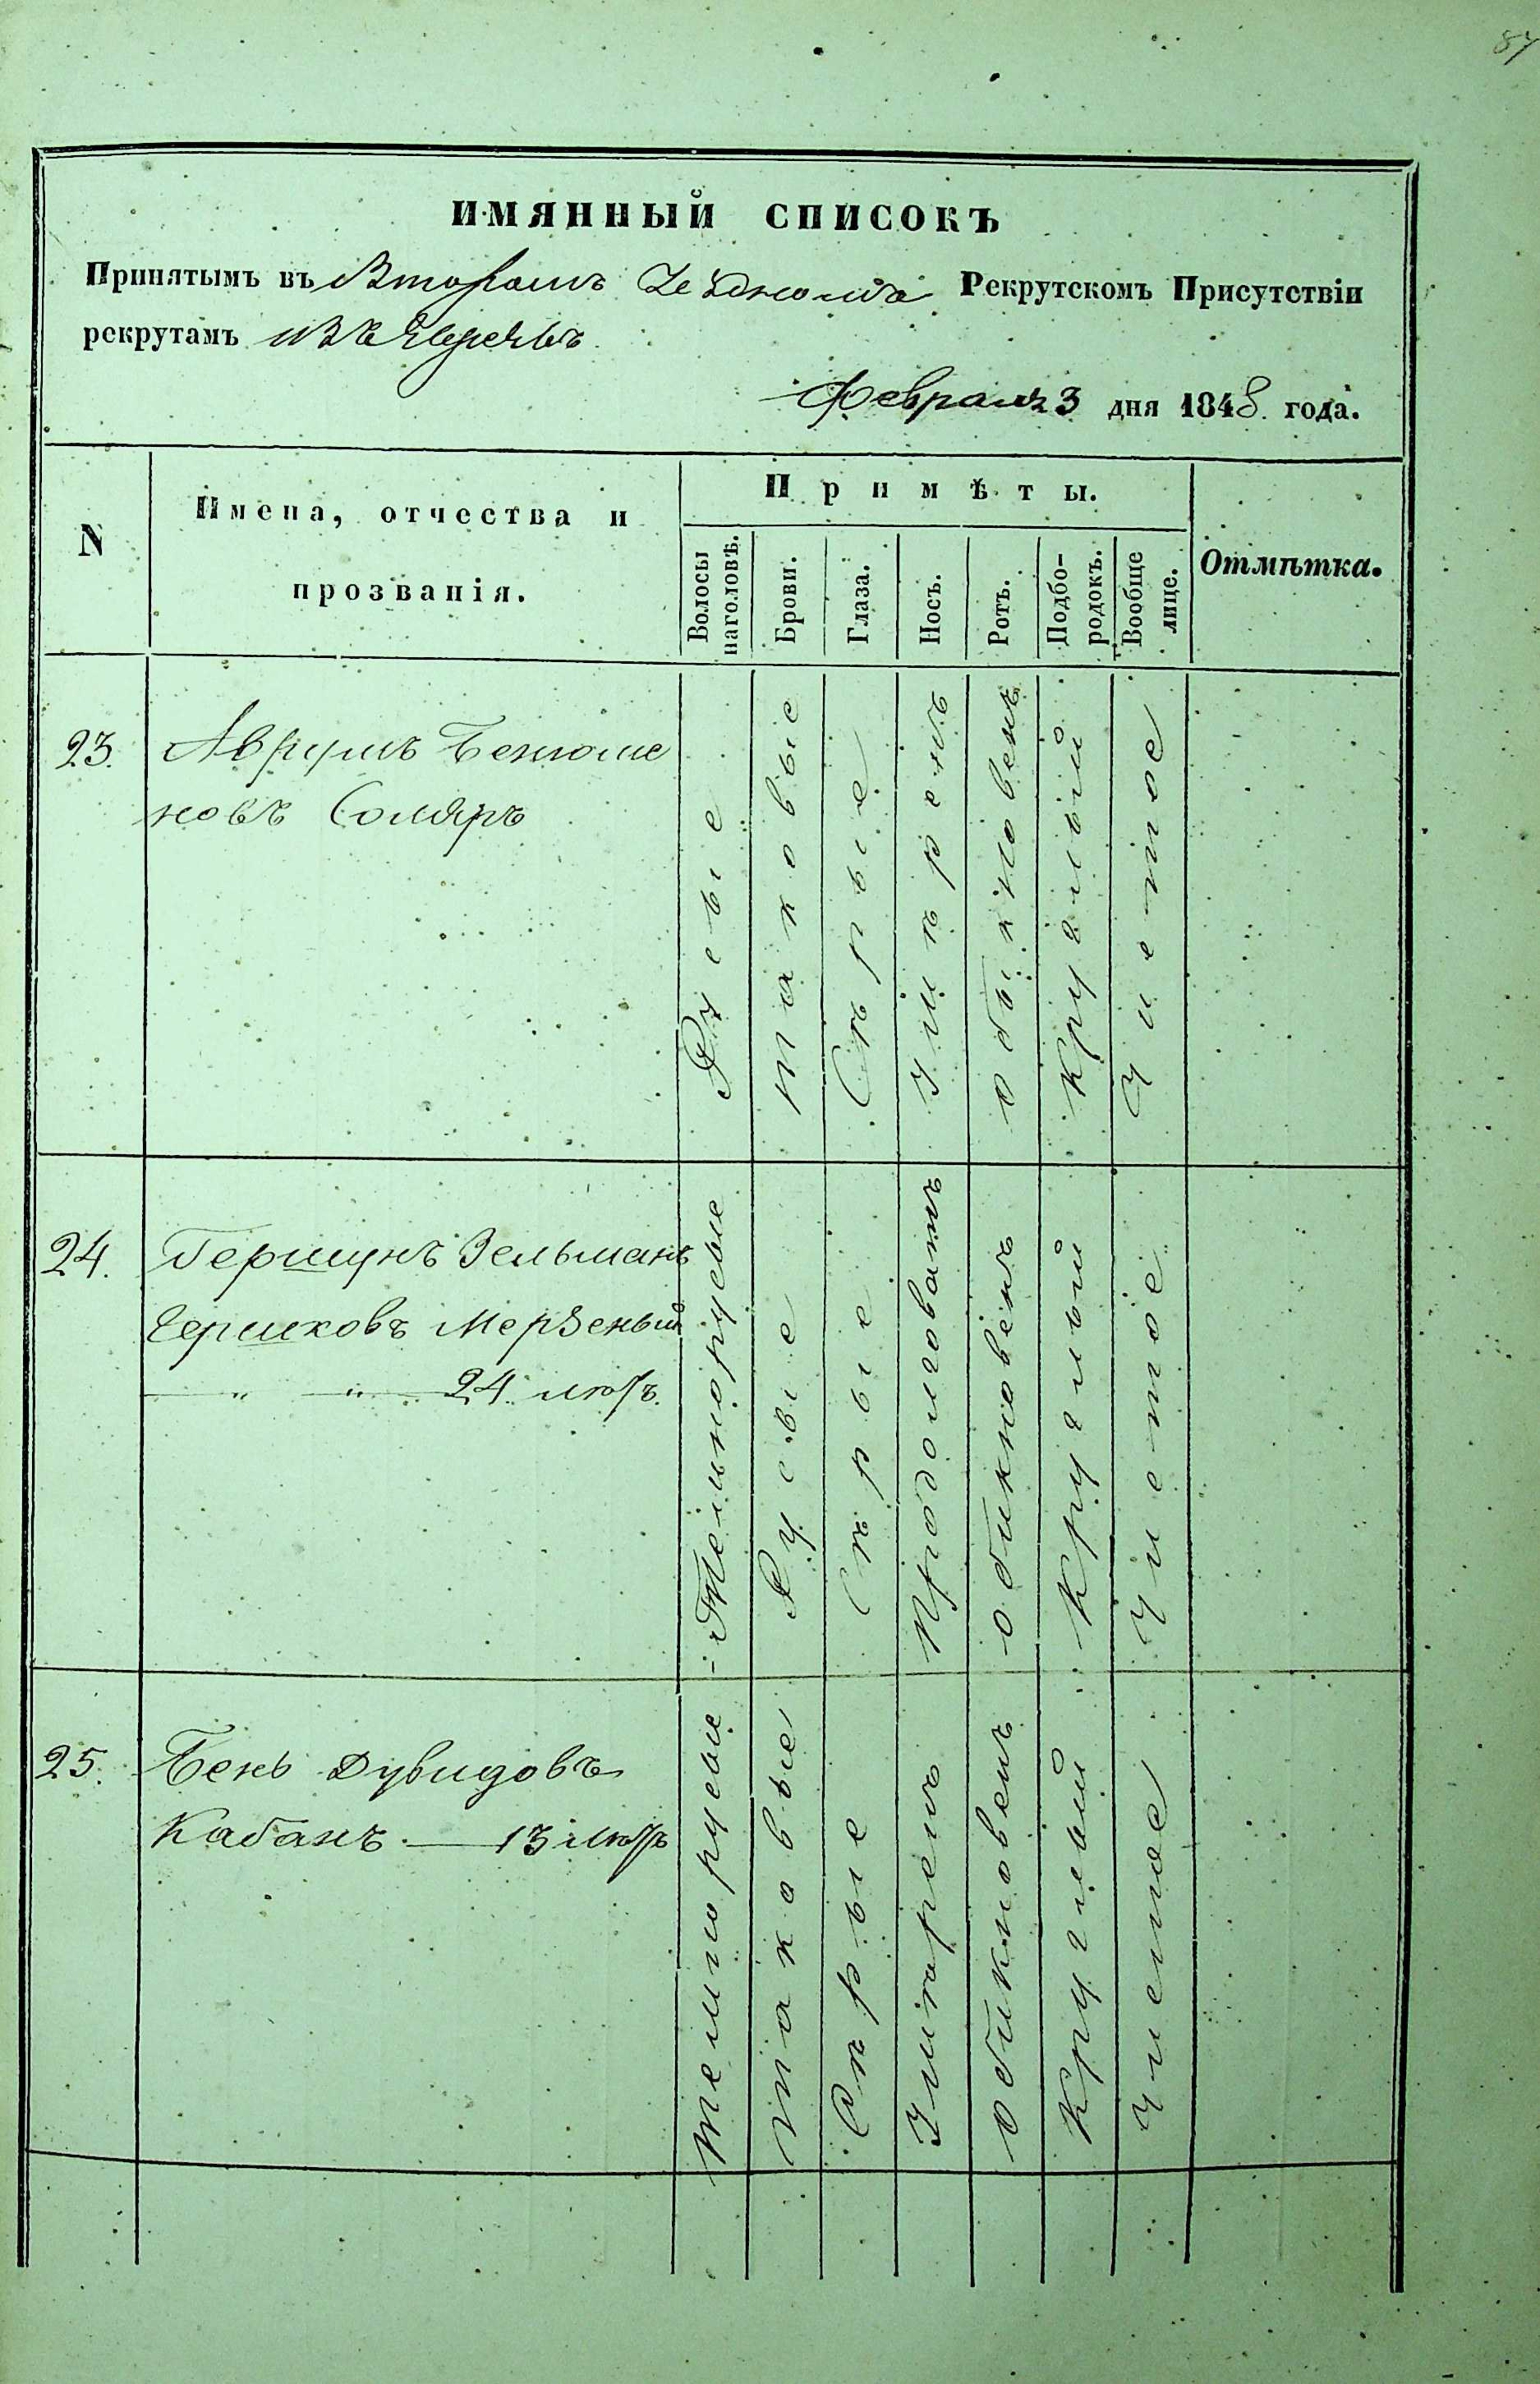 87
ИМЯННЫЙ СПИСОКЪ
Принятымъ въ Второмъ Уѣздномъ Рекрутскомъ Присутствіи
рекрутамъ изъ Евреевъ
Февраля 3 дня 1848 года.
N
Имена, отчества и
прозванія.
Примѣты.
Волосы
наголовѣ.
Брови.
Глаза.
Носъ.
Ротъ.
Подбо-
родокъ.
Вообще
лице.
Отмѣтка.
23. Аврумъ Бенюми
новъ Соляръ
Русые
таковые
Сѣрые
Умѣренъ
обыкновенъ
Круглый
Чистое
24. Гершунъ Зельманъ
Гершковъ Мерзеный
24 лѣтъ.
Темнорусые
Русые
Сѣрые
Продолговатъ
обикновенъ
Круглый
Чистое
25. Бень Дувидовъ
Кабанъ — 13 лѣтъ
темнорусые
таковые
Сѣрые
Умѣренъ
обикновенъ
Круглый
Чистое